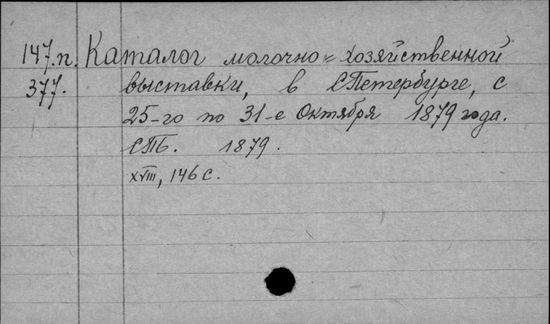 147.п. Каталог молочно-хозяйственной
377. выставки, в СПетербурге, с
25-го по 31-е Октября 1879 года.
СПБ. 1879.
XVIII, 146 с.